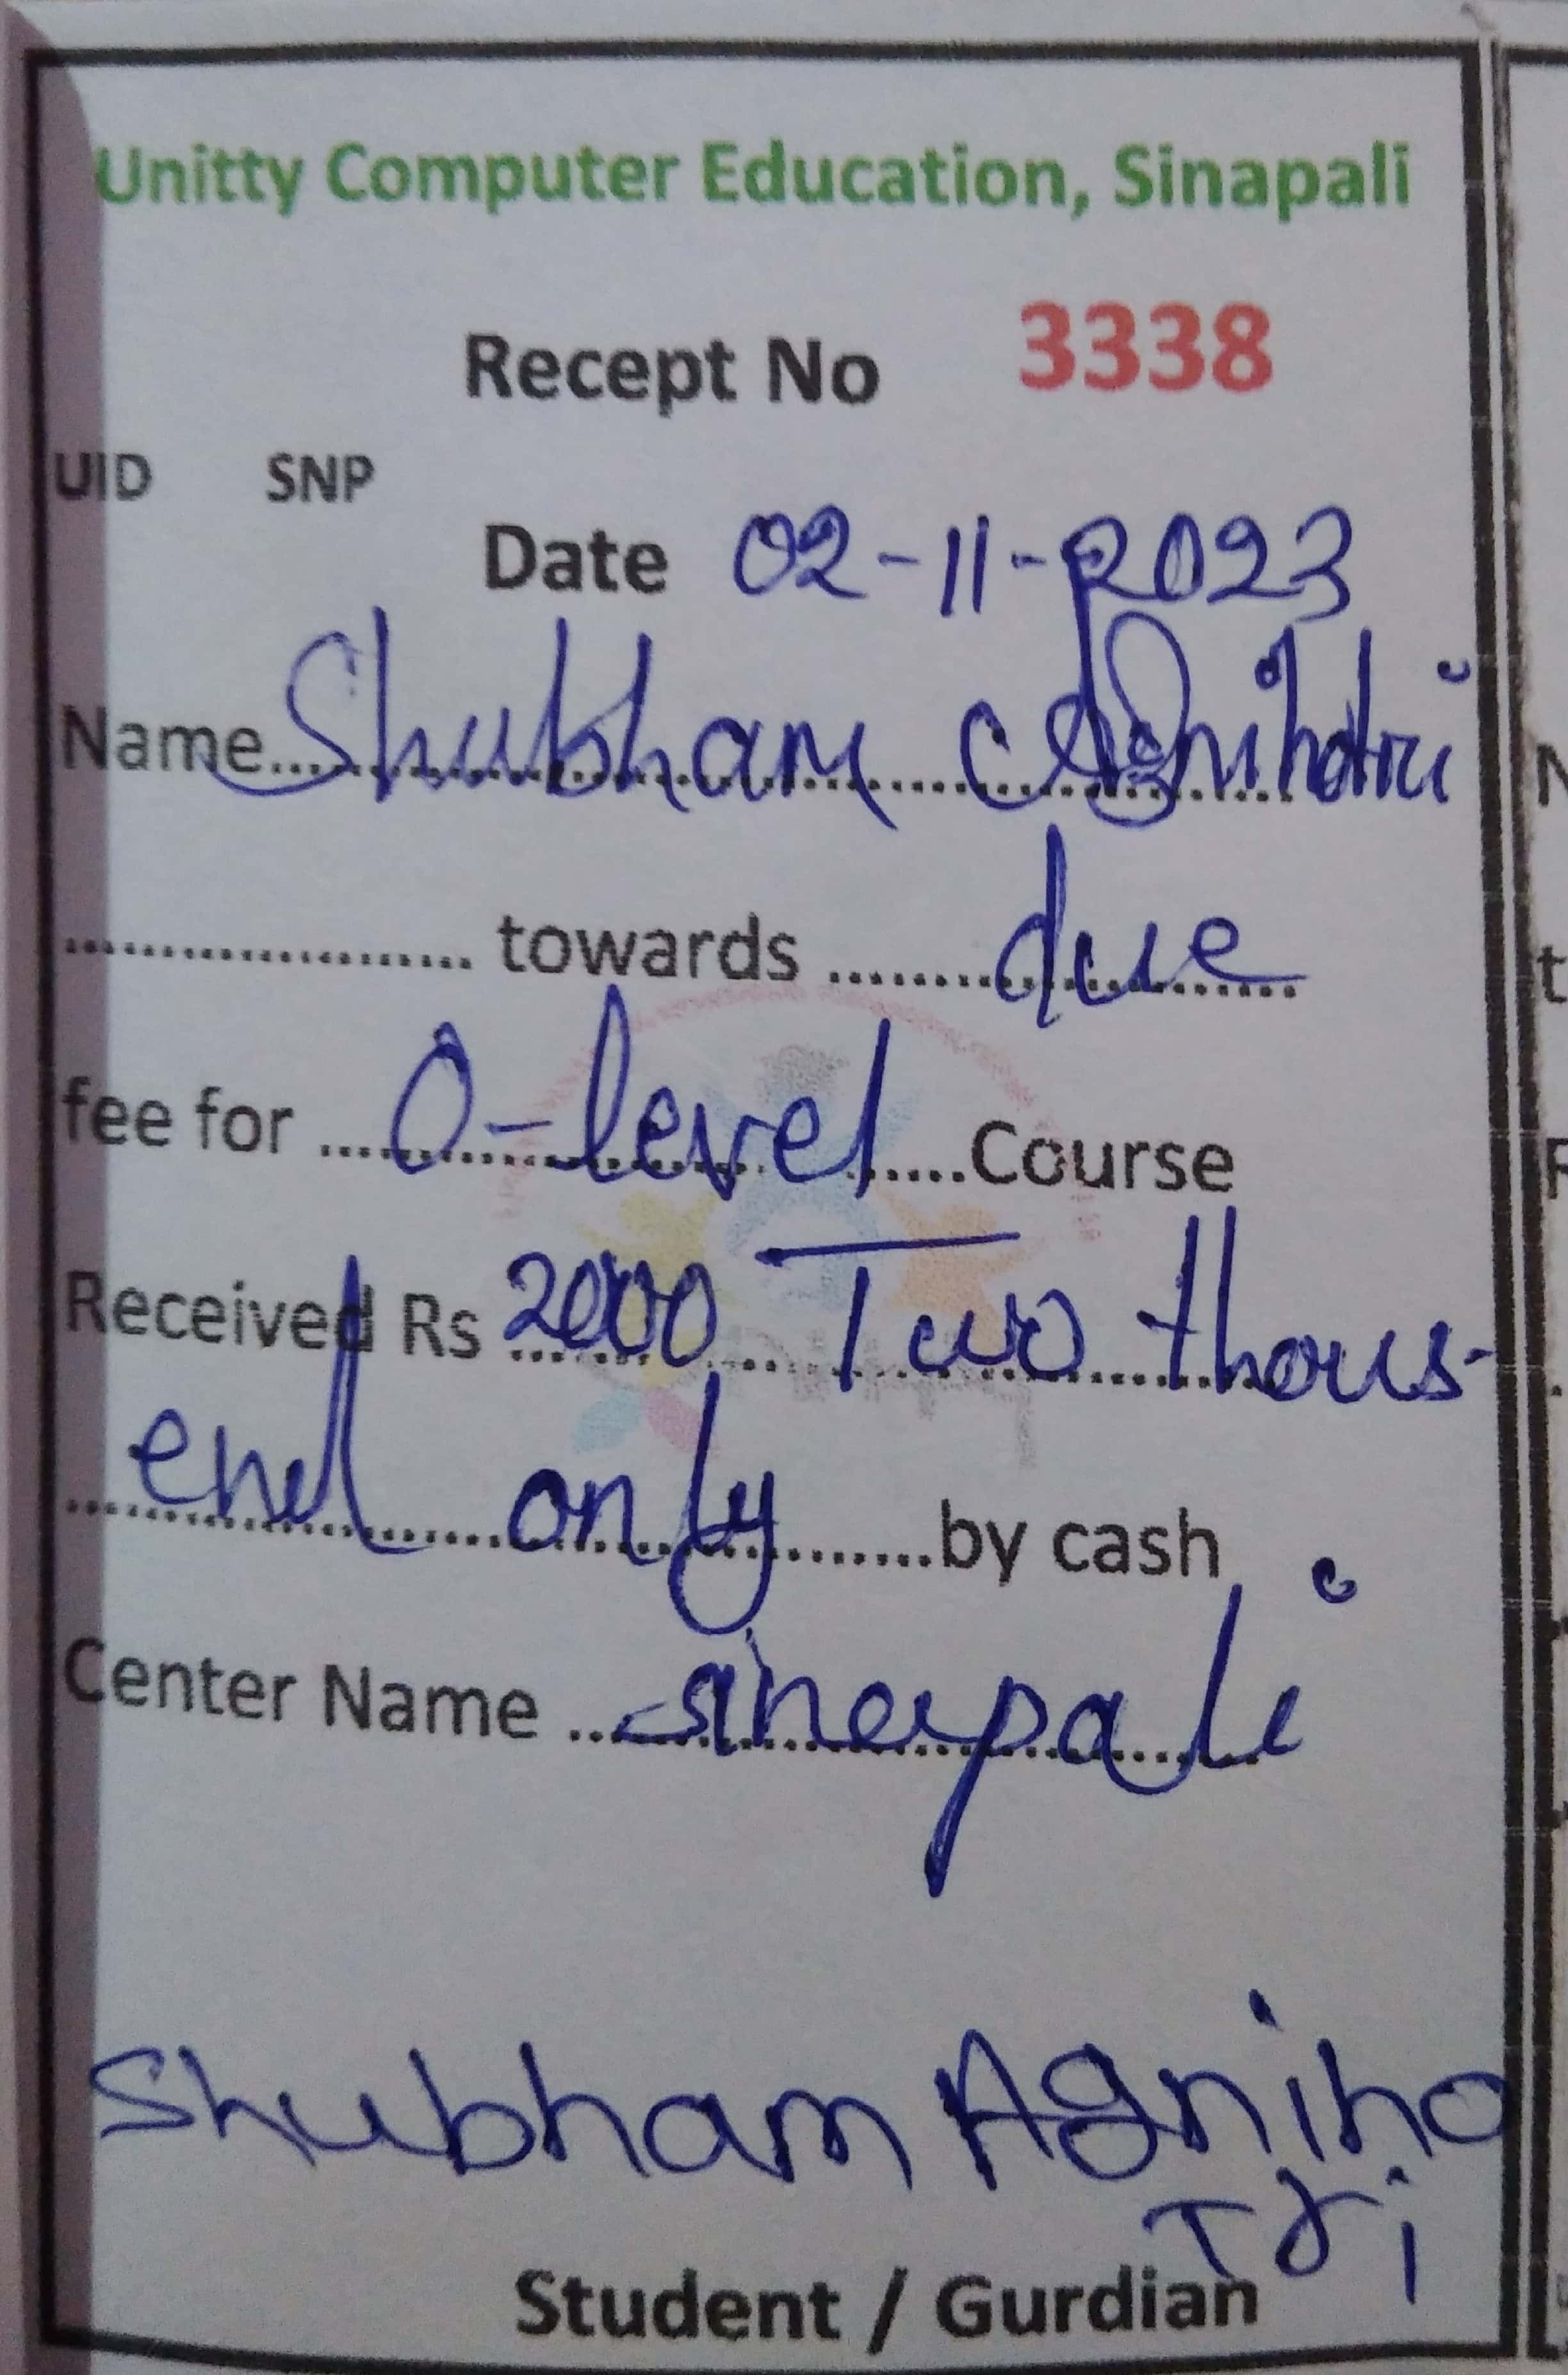 Unitty Computer Education, Sinapali
Recept No 3338
UID SNP
Date 02-11-2023
Name Shubham Agnihotri
towards due
fee for O-level Course
Received Rs 2000 Two thous-
end only by cash
Center Name sinapali
Shubham Agniho
Tri
Student / Gurdian